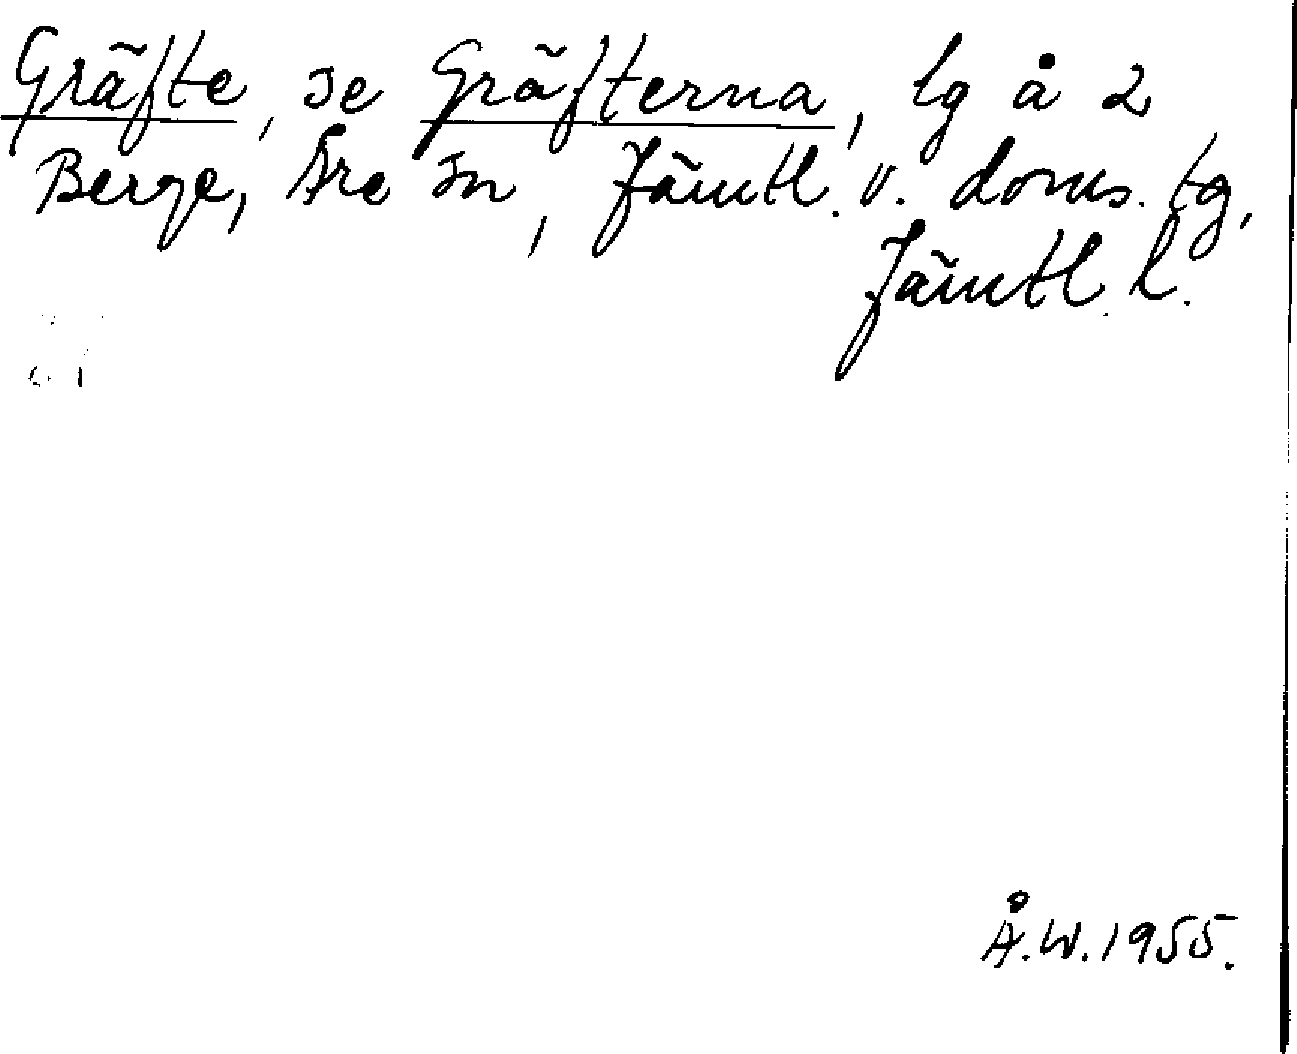 Gräfte, se Gräfterna, lg å 2
Berge, Åre sn, Jämtl. v. doms. tg,
Jämtl. l.
Å.W. 1955.